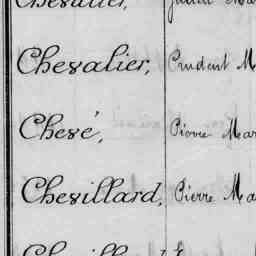 Chevalier, Prudent M
Chevé, Pierre Mar
Chevillard, Pierre Ma